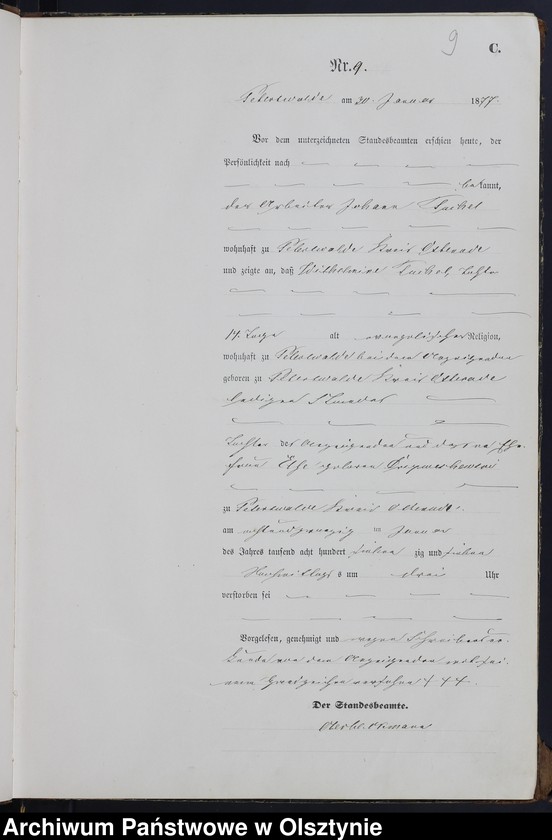 9
C.
Nr. 9.
am 30. Januar 1877.
Vor dem unterzeichneten Standesbeamten erschien heute, der
Persönlichkeit nach
bekannt,
der Arbeiter Johann
wohnhaft zu Peterswalde Kreis Osterode
und zeigte an, daß Wilhelmine
14 Tage alt evangelischer Religion,
wohnhaft zu Peterswalde bei dem Anzeigenden
geboren zu Peterswalde Kreis Osterode
ledigen Standes
Tochter des Anzeigenden und dessen Ehe-
frau geborenen
zu Peterswalde Kreis Osterode
am achtundzwanzig ten Januar
des Jahres tausend acht hundert sieben zig und sieben
Nachmittags s um drei Uhr
verstorben sei
Vorgelesen, genehmigt und wegen Schreibensun-
kunde von dem Anzeigenden mit sei-
nem Handzeichen versehen + + +
Der Standesbeamte.
Archiwum Państwowe w Olsztynie